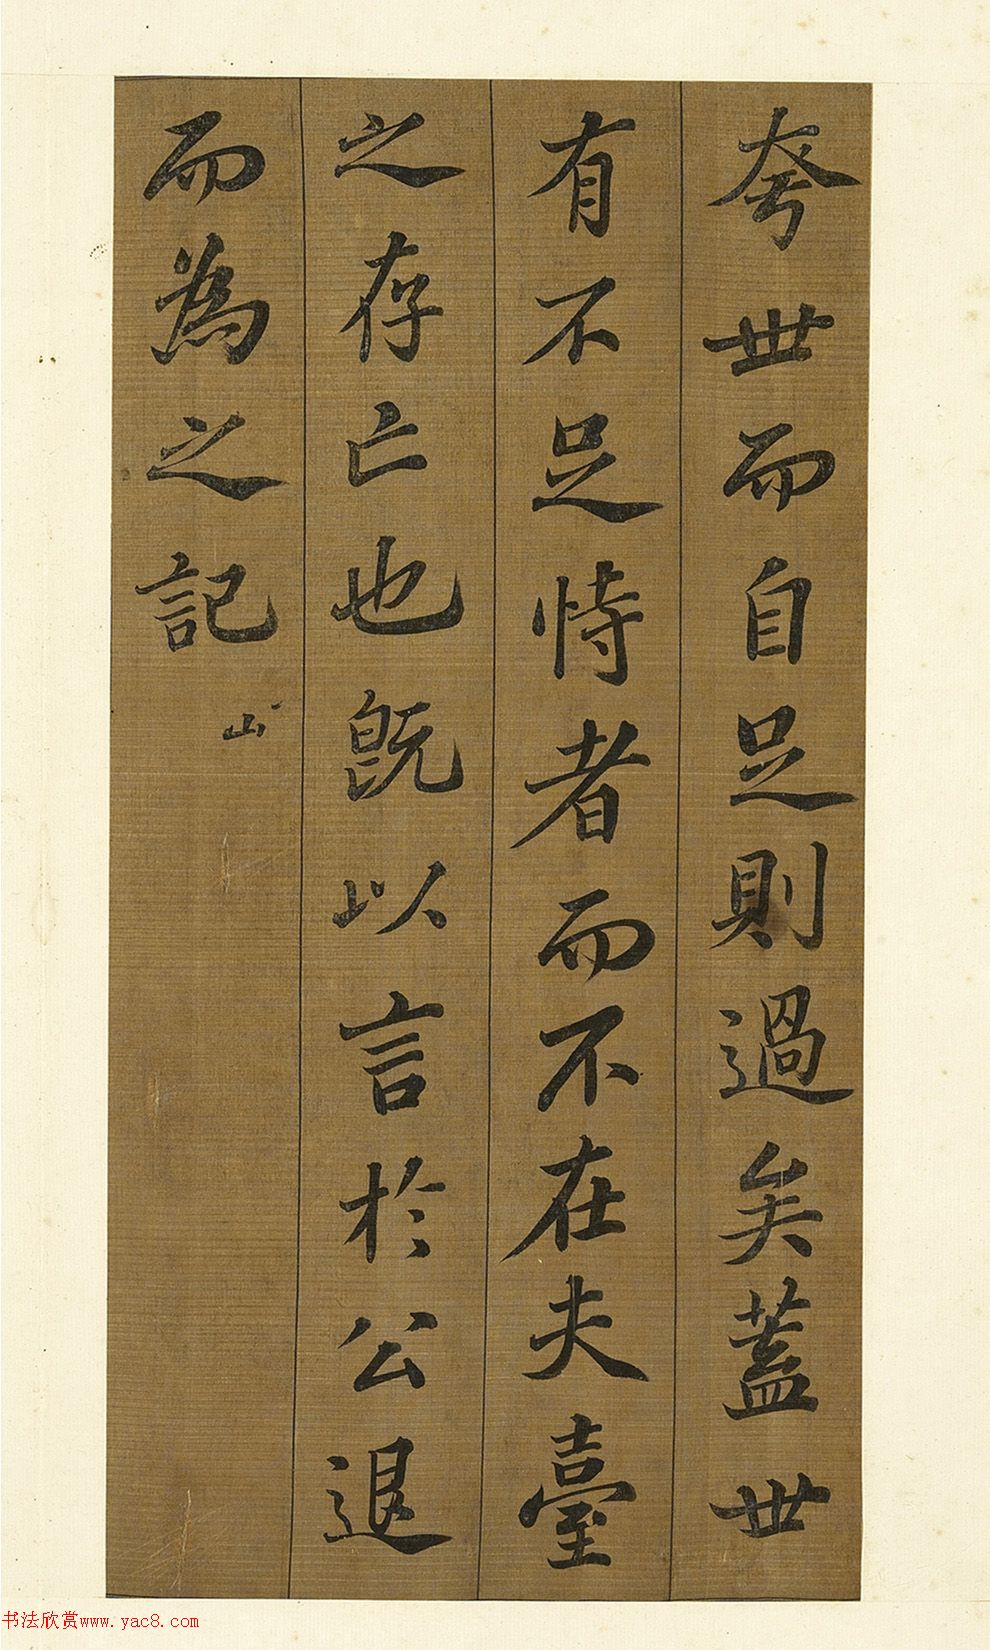 夸世而自足則過矣蓋世
有不足恃者而不在夫臺
之存亡也既以言於公退
而為之記
山
书法欣赏www.yac8.com